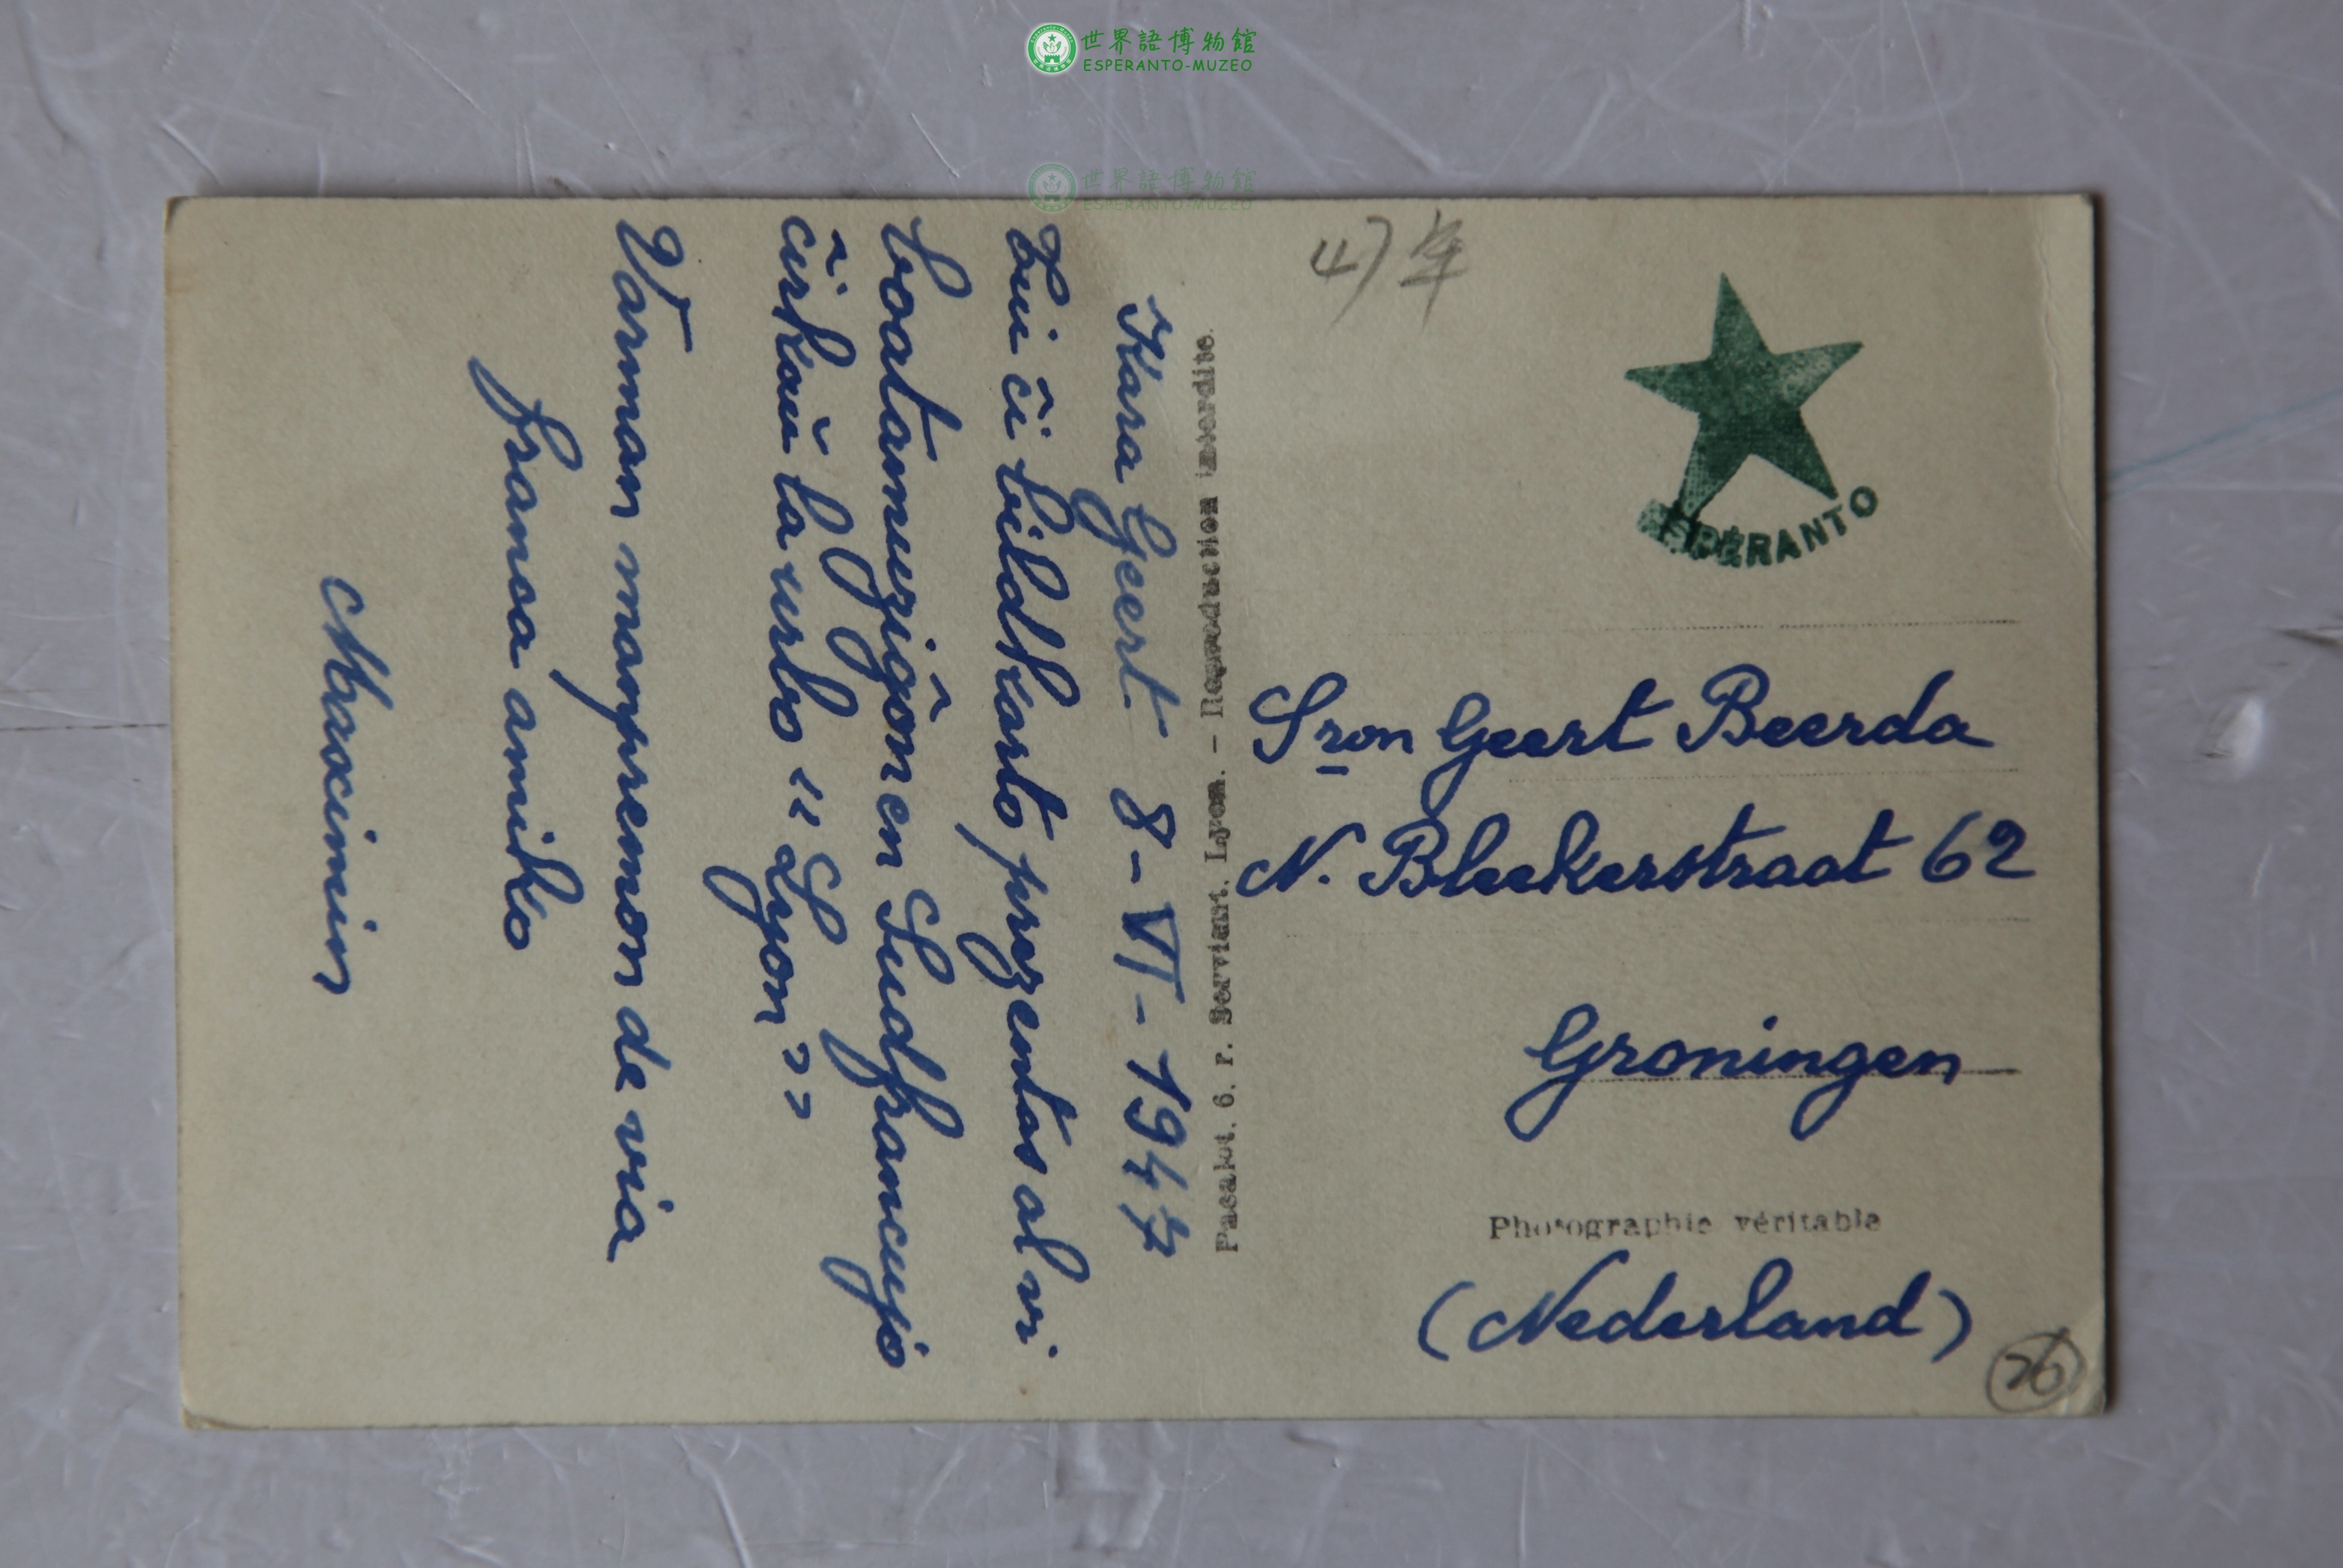 世界語博物館
ESPERANTO-MUZEO
世界語博物館
ESPERANTO-MUZEO
47年
ESPÉRANTO
Kara Geert 8-VI-1947
Tiu ĉi bildkarto prezentas al vi
boatamuziĝon en Sudfrancujo
ĉirkaŭ la urbo "Lyon"
Varman manpremon de via
franca amiko
Maximin
Pacalot. 6. r. Servient. Lyon. - Reproduction interdite.
Sron Geert Beerda
N. Bleekerstraat 62
Groningen
Photographie véritable
(Nederland)
26